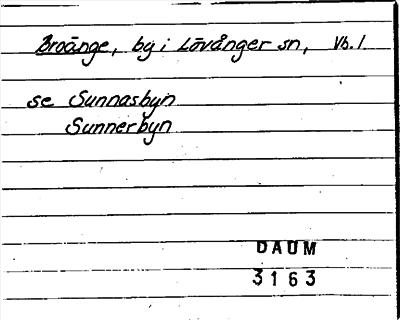 Broänge, by i Lövånger sn, Vb. l.
se Sunnasbyn
Sunnerbyn
DAUM
3163